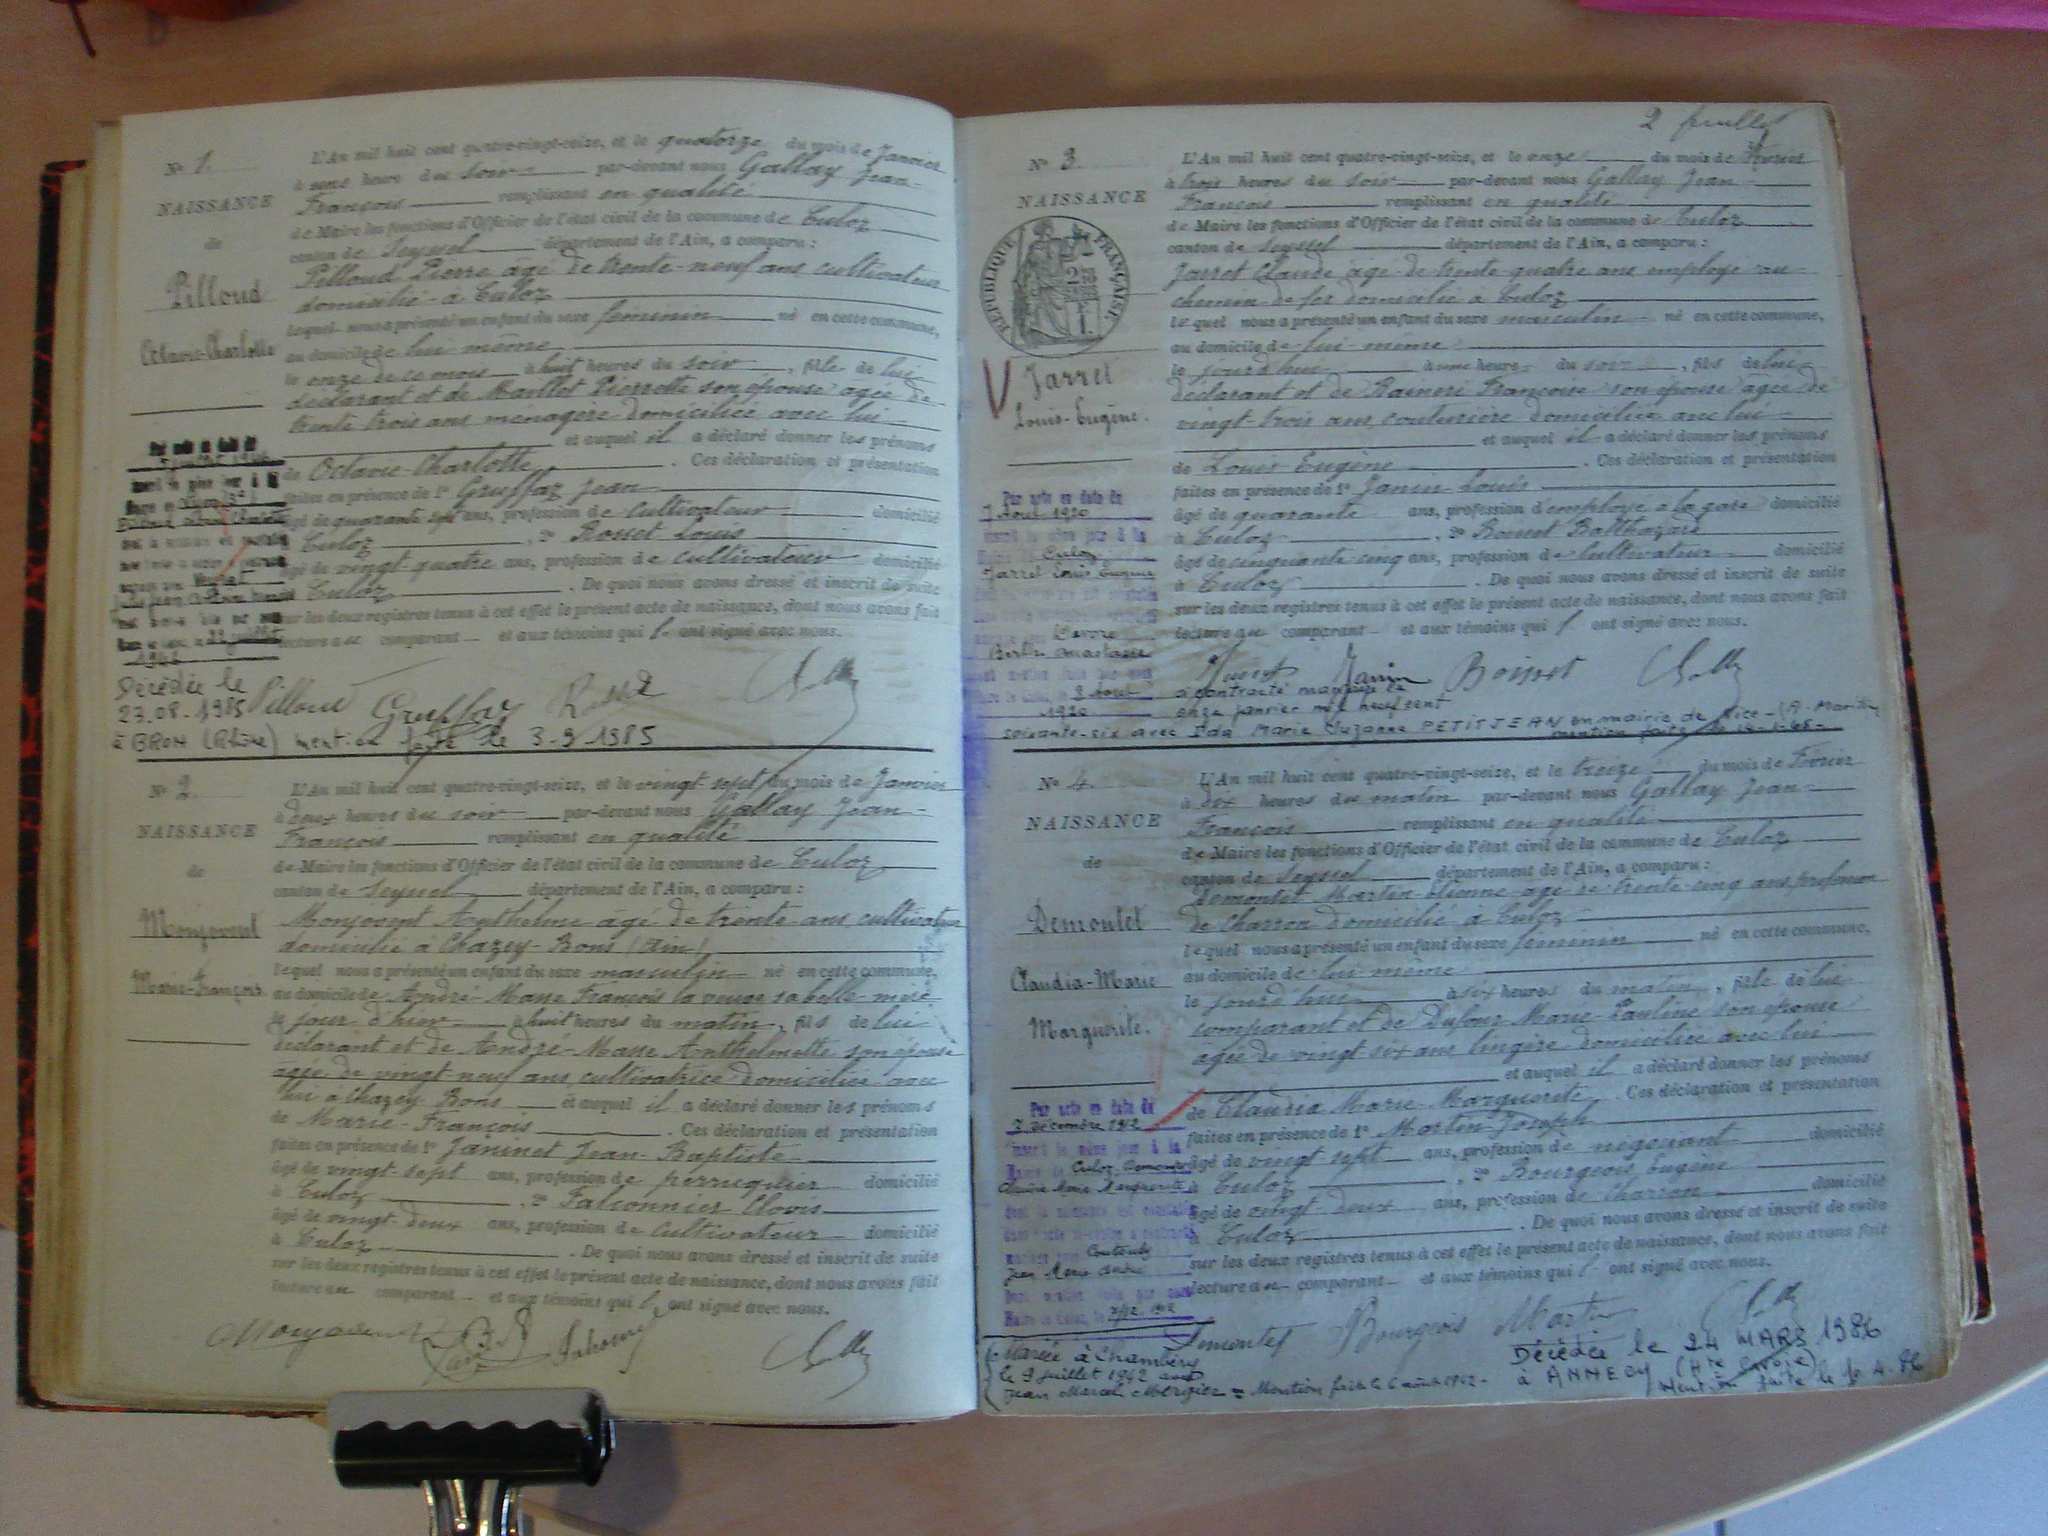 N° 1.
NAISSANCE
de
Pilloud
Octavie-Charlotte
L'An mil huit cent quatre-vingt-seize, et le quatorze du mois de Janvier
à heure du soir par-devant nous Gallay Jean-
François remplissant en qualité
de Maire les fonctions d'Officier de l'état civil de la commune de Culoz
canton de Seyssel département de l'Ain, a comparu :
Pilloud Pierre âgé de trente-neuf ans cultivateur
domicilié à Culoz
lequel nous a présenté un enfant du sexe féminin né en cette commune,
au domicile de lui même
le onze de ce mois à huit heures du soir, fille de lui
déclarant et de Maillet Pierrette son épouse âgée de
trente trois ans ménagère domiciliée avec lui
et auquel il a déclaré donner les prénoms
de Octavie Charlotte. Ces déclaration et présentation
faites en présence de 1° Gruffaz Jean
âgé de quarante sept ans, profession de cultivateur domicilié
Culoz, 2° Rosset Louis
âgé de vingt quatre ans, profession de cultivateur domicilié
Culoz. De quoi nous avons dressé et inscrit de suite
sur les deux registres tenus à cet effet le présent acte de naissance, dont nous avons fait
lecture au comparant et aux témoins qui ont signé avec nous.
Décédée le
23.08.1985
à BRON (Rhône) mention faite le 3-9 1985
Pilloud Gruffaz Rosset
N° 2.
NAISSANCE
de
Monjovent
Marie-François
L'An mil huit cent quatre-vingt-seize, et le vingt sept du mois de Janvier
à deux heures du soir par-devant nous Gallay Jean-
François remplissant en qualité
de Maire les fonctions d'Officier de l'état civil de la commune de Culoz
canton de Seyssel département de l'Ain, a comparu :
Monjovent Anthelme âgé de trente ans cultivateur
domicilié à Chazey-Bons (Ain)
lequel nous a présenté un enfant du sexe masculin né en cette commune,
au domicile de André-Masse François la veuve sa belle-mère
le jour d'hier à huit heures du matin, fils de lui
déclarant et de André-Masse Anthelmette son épouse
âgée de vingt neuf ans cultivatrice domiciliée avec
lui à Chazey Bons et auquel il a déclaré donner les prénoms
de Marie-François. Ces déclaration et présentation
faites en présence de 1° Janinet Jean-Baptiste
âgé de vingt-sept ans, profession de perruquier domicilié
à Culoz, 2° Falconnier Clovis
âgé de vingt-deux ans, profession de cultivateur domicilié
à Culoz. De quoi nous avons dressé et inscrit de suite
sur les deux registres tenus à cet effet le présent acte de naissance, dont nous avons fait
lecture au comparant et aux témoins qui ont signé avec nous.
2 feuillet
N° 3.
NAISSANCE
RÉPUBLIQUE FRANÇAISE
Jarret
Louis-Eugène.
L'An mil huit cent quatre-vingt-seize, et le onze du mois de Février
à trois heures du soir par-devant nous Gallay Jean-
François remplissant en qualité
de Maire les fonctions d'Officier de l'état civil de la commune de Culoz
canton de Seyssel département de l'Ain, a comparu :
Jarret Claude âgé de trente-quatre ans employé au
chemin de fer domicilié à Culoz
lequel nous a présenté un enfant du sexe masculin né en cette commune,
au domicile de lui même
le jourd'hui à une heure du soir, fils de lui
déclarant et de Raineri Françoise son épouse âgée de
vingt-trois ans couturière domiciliée avec lui
et auquel il a déclaré donner les prénoms
de Louis Eugène. Ces déclaration et présentation
faites en présence de 1° Janin Louis
âgé de quarante ans, profession d'employé à la gare domicilié
à Culoz, 2° Bonnet Balthazard
âgé de cinquante-cinq ans, profession de cultivateur domicilié
à Culoz. De quoi nous avons dressé et inscrit de suite
sur les deux registres tenus à cet effet le présent acte de naissance, dont nous avons fait
lecture au comparant et aux témoins qui ont signé avec nous.
Par acte en date du
7 Août 1920
inscrit le même jour à la
Mairie de Culoz
Jarret Louis Eugène
Berthe Anastasie
1920
Janin
a contracté mariage le
onze janvier mil neuf cent
soixante-six avec Ida Marie Suzanne PETITJEAN en mairie de Nice
N° 4.
NAISSANCE
de
Demontet
Claudia-Marie
Marguerite.
L'An mil huit cent quatre-vingt-seize, et le treize du mois de Février
à dix heures du matin par-devant nous Gallay Jean-
François remplissant en qualité
de Maire les fonctions d'Officier de l'état civil de la commune de Culoz
canton de Seyssel département de l'Ain, a comparu :
Demontet Martin-Etienne âgé de trente-cinq ans profession
de charron domicilié à Culoz
lequel nous a présenté un enfant du sexe féminin né en cette commune,
au domicile de lui même
le jourd'hui à six heures du matin, fille de lui
comparant et de Dufour Marie-Pauline son épouse
âgée de vingt-six ans lingère domiciliée avec lui
et auquel il a déclaré donner les prénoms
de Claudia Marie-Marguerite. Ces déclaration et présentation
faites en présence de 1° Martin Joseph
âgé de vingt-sept ans, profession de négociant domicilié
à Culoz, 2° Bourgeois Eugène
âgé de vingt-deux ans, profession de charron domicilié
à Culoz. De quoi nous avons dressé et inscrit de suite
sur les deux registres tenus à cet effet le présent acte de naissance, dont nous avons fait
lecture au comparant et aux témoins qui ont signé avec nous.
Par acte en date du
7 Décembre 1912
inscrit le même jour à la
Mairie de Culoz Demontet
Claudia Marie Marguerite
Jean Marie André
Demontet Bourgeois Martin
Mariée à Chambéry
le 9 juillet 1942 avec
Jean Marcel Mercier = Mention faite le 6 août 1942
Décédée le 24 MARS 1986
à ANNECY (Hte Savoie)
Mention faite le 10.4.86